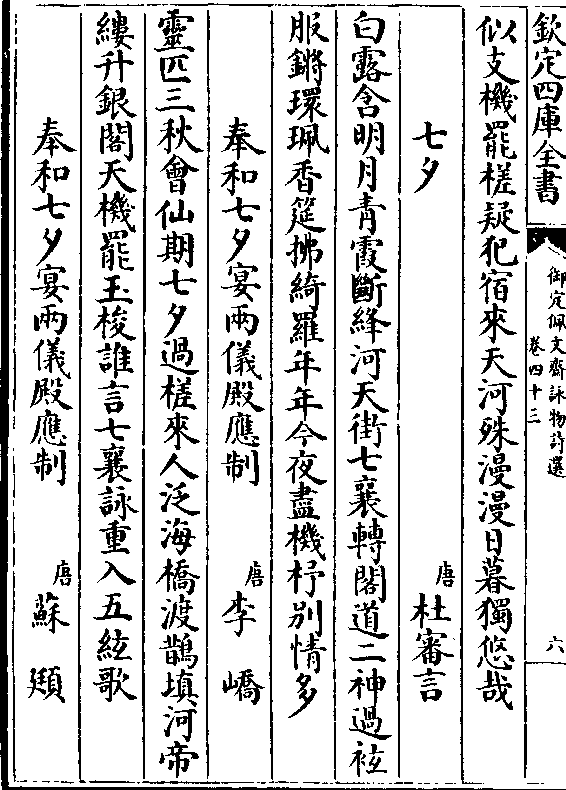 欽定四庫全書
御定佩文齋詠物詩選
卷四十三
六
似支機罷槎疑犯宿來天河殊漫漫日暮獨悠哉
七夕 唐 杜審言
白露含明月青霞斷絳河天街七襄轉閣道二神過袨
服鏘環珮香筵拂綺羅年年今夜盡機杼別情多
奉和七夕宴兩儀殿應制 唐 李嶠
靈匹三秋會仙期七夕過槎來人泛海橋渡鵲填河帝
縷升銀閣天機罷玉梭誰言七襄詠重入五絃歌
奉和七夕宴兩儀殿應制 唐 蘇頲